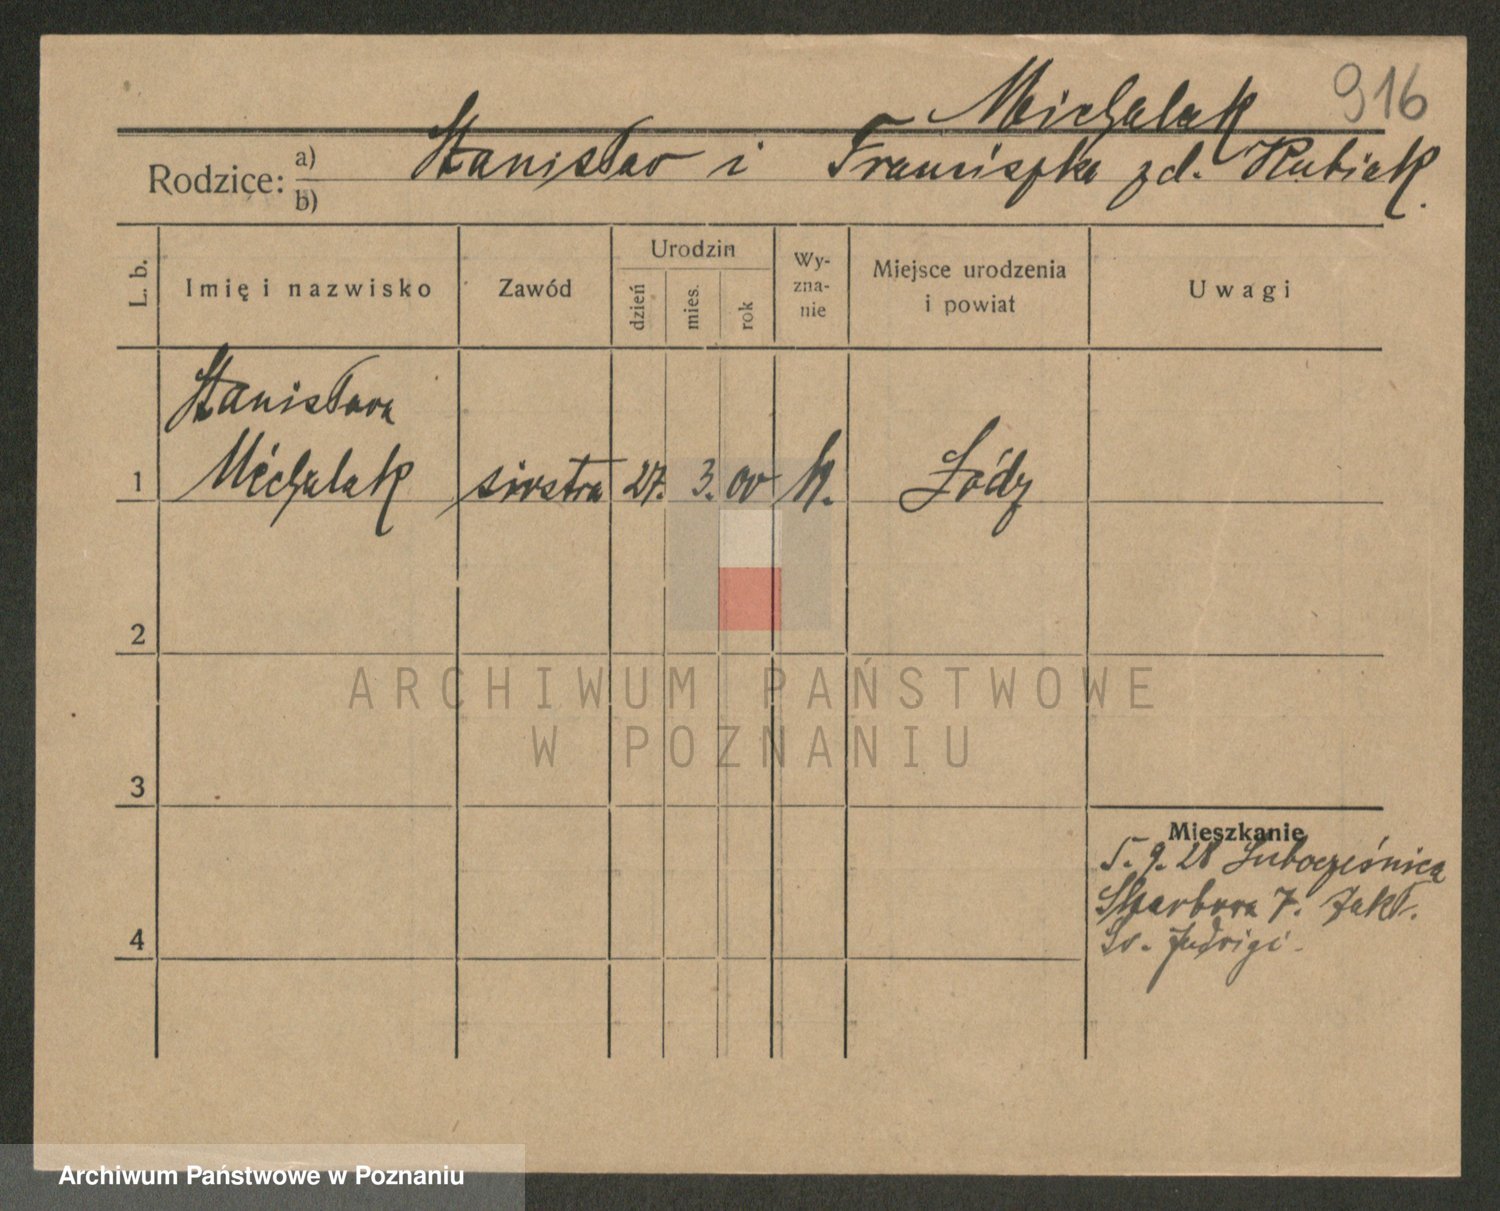 916
Michalak
Rodzice: a) b)
Stanisław i Franciszka zd. Kubiak.
L. b.
Imię i nazwisko
Zawód
Urodzin
dzień
mies.
rok
Wy-
zna-
nie
Miejsce urodzenia
i powiat
Uwagi
Stanisława
1 Michalak siostra 27. 3. 00 k. Łódź
2
3
4
Mieszkanie
5. 9. 28
7. Zakł.
Św. Jadwigi.
ARCHIWUM PAŃSTWOWE
W POZNANIU
Archiwum Państwowe w Poznaniu